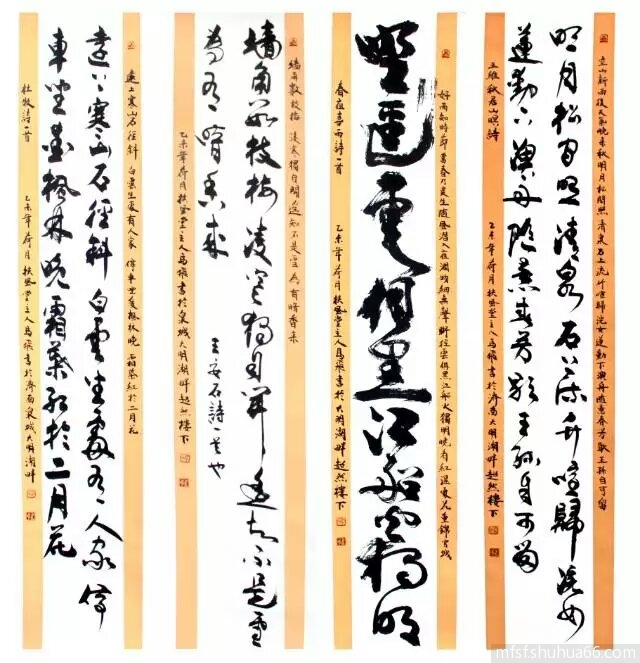 空山新雨後天氣晚来秋明月松間照清泉石上流竹喧歸浣女蓮動下漁舟隨意春芳歇王孫自可留
明月松間照清泉石上流竹喧歸浣女
蓮動下漁舟隨意春芳歇王孫自可留
王維秋居山暝詩 乙未年荷月扶風堂主人馬飛書於濟南大明湖畔超然樓下
好雨知時節當春乃發生隨風潛入夜潤物細無聲野徑雲俱黑江船火獨明曉看紅濕處花重錦官城
野徑雲俱黑江船火獨明
春夜喜雨詩一首 乙未年荷月扶風堂主人馬飛書於大明湖畔超然樓下
墙角數枝梅凌寒獨自開遥知不是雪為有暗香来
墙角數枝梅凌寒獨自開遥知不是雪
為有暗香来 王安石詩一首也
乙未年荷月扶風堂主人馬飛書於泉城大明湖畔超然樓下
遠上寒山石徑斜白雲生處有人家停車坐愛楓林晚霜葉紅於二月花
遠上寒山石徑斜白雲生處有人家停
車坐愛楓林晚霜葉紅於二月花
杜牧詩一首 乙未年荷月扶風堂主人馬飛書於濟南泉城大明湖畔
mfsf.shuhua66.com